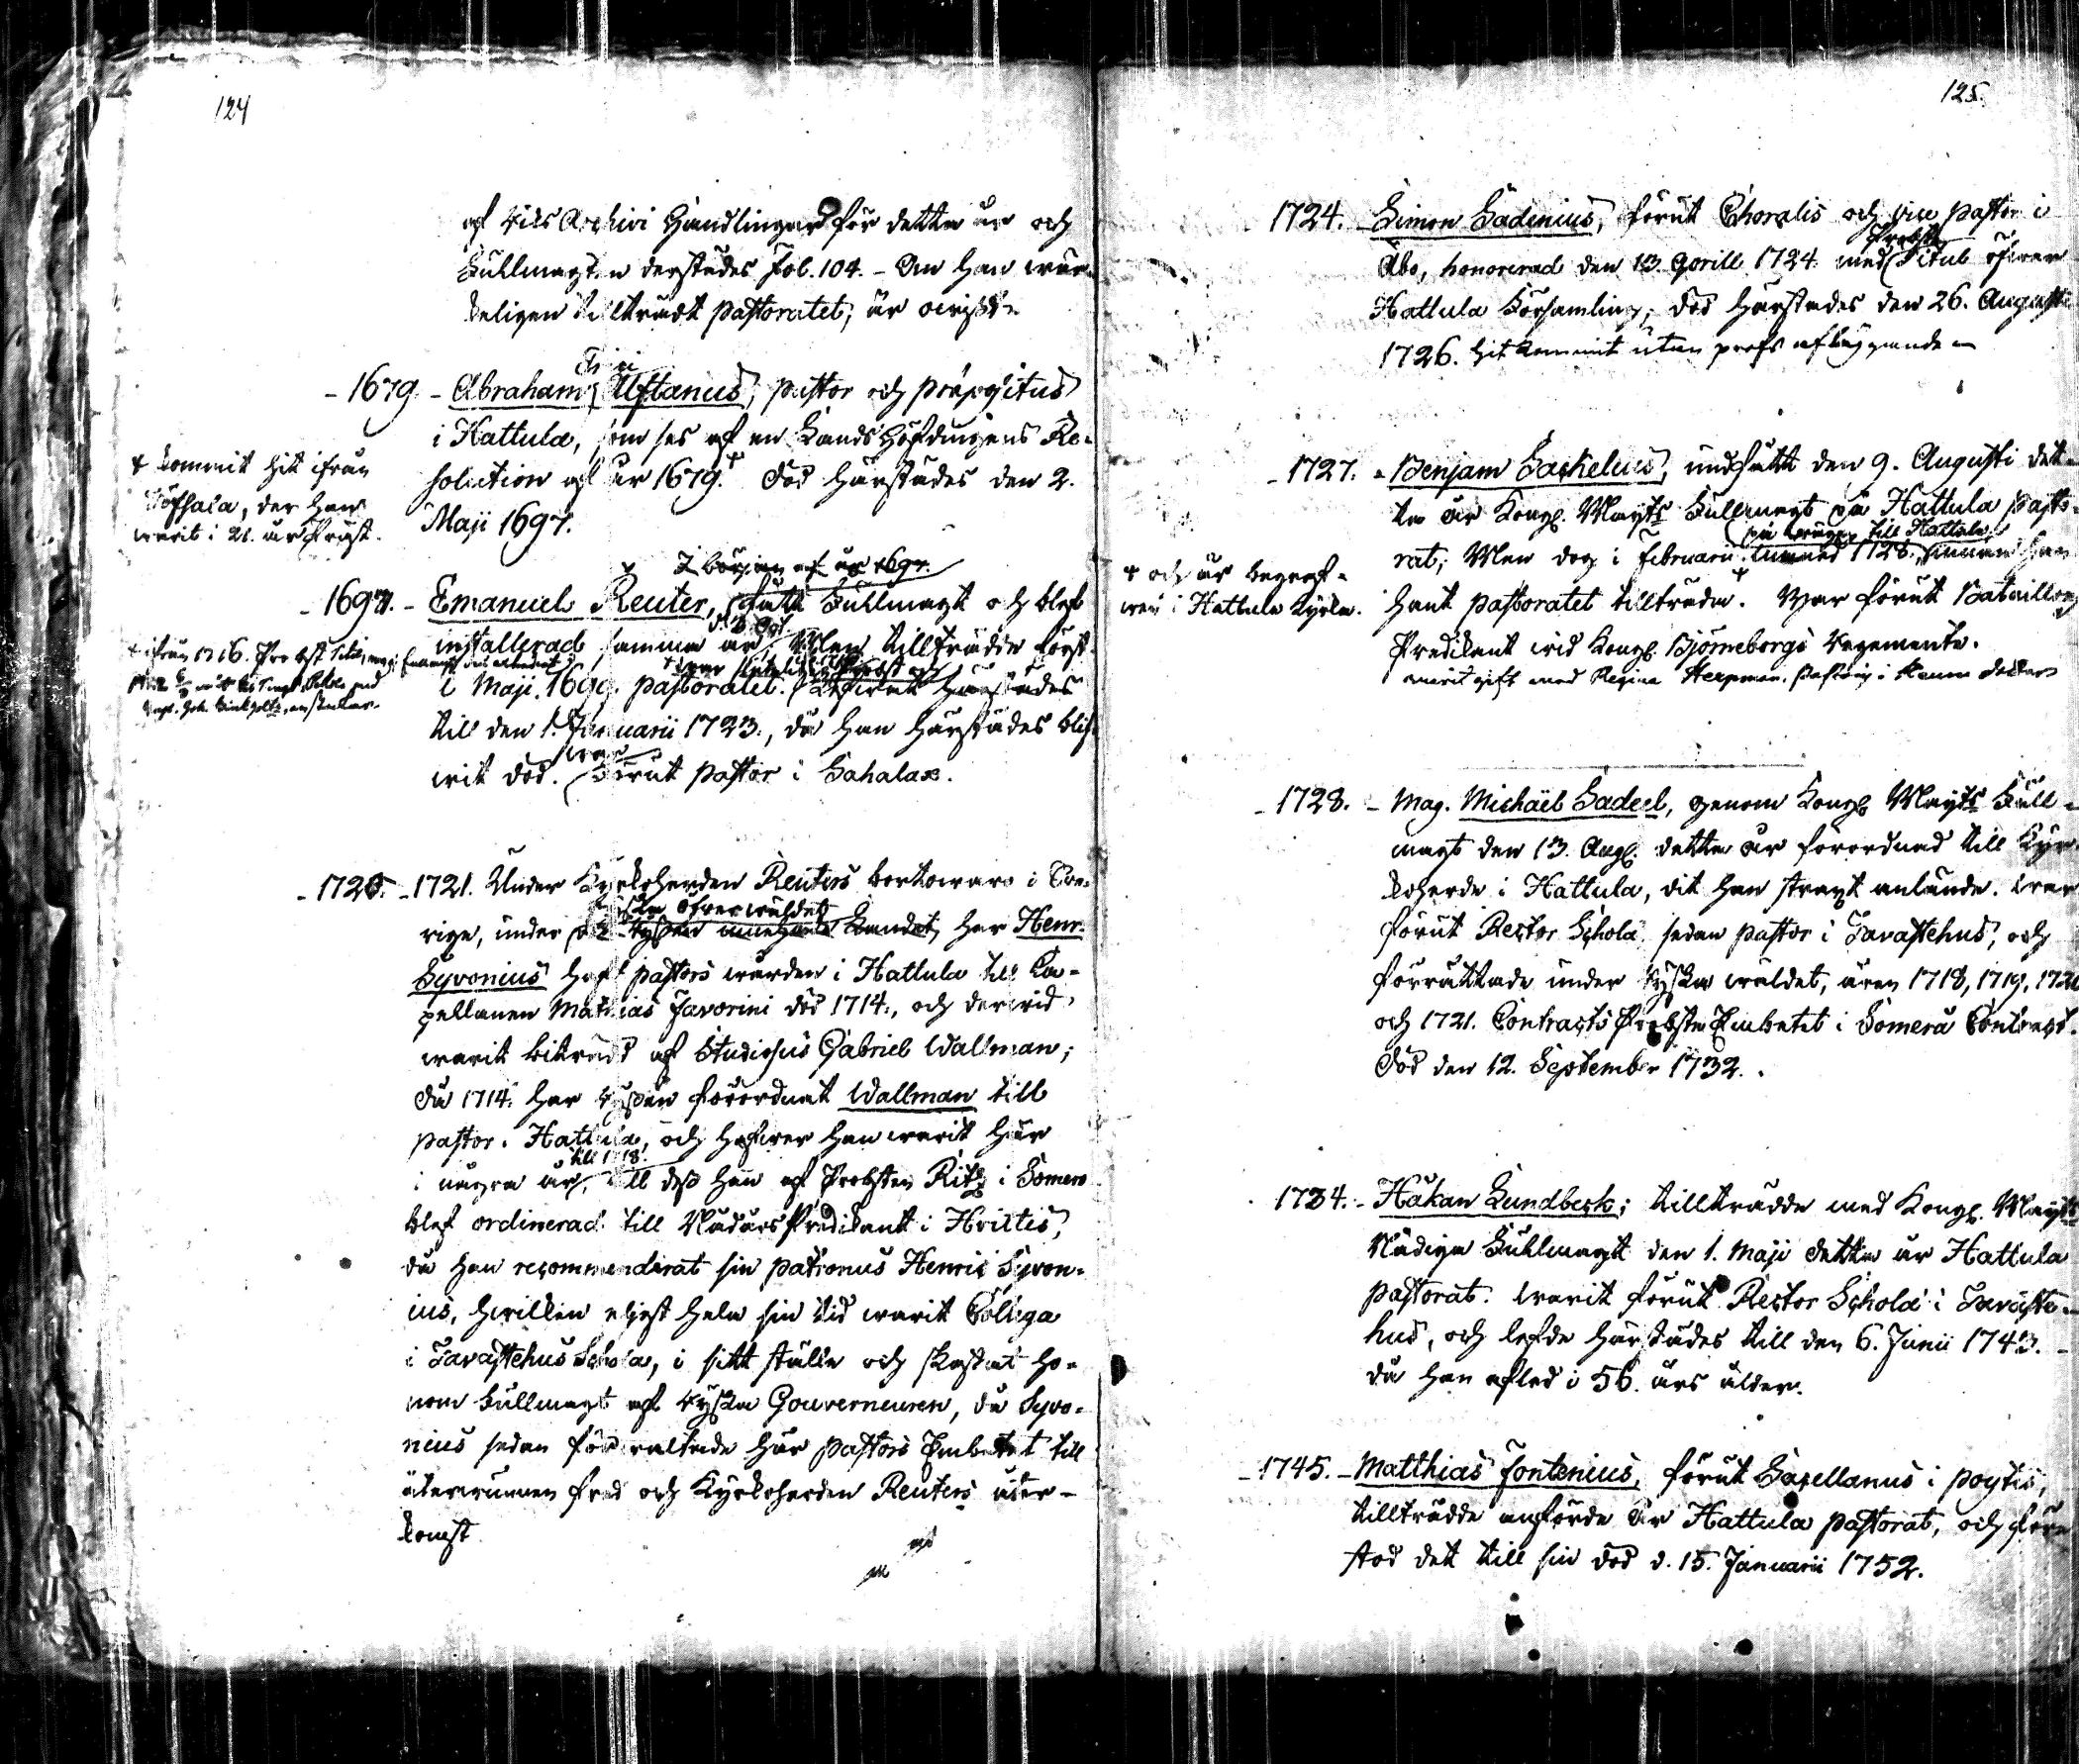 124
af Riks Archivi Handlingar för detta år och
Fullmagten derstädes Fol. 104. - Om han wär-
keligen tillträdt pastoratet, är owisst.
- 1679. - Abraham Ulstanus, pastor och præpositus
i Hattula, som ses af en Lands Höfdingens Re-
solution af år 1679. + Död härstädes den 2.
Maji 1697.
+ kommit hit ifrån
Töfsala, der han
warit i 21. år Präst.
I början af år 1697.
- 1697. - Emanuel Reuter, fått Fullmagt och blef
installerad samma år, Men tillträdde först
i Maji 1699. pastoratet.
+ ifrån 1716. Probst Titel,
til den 1. Januarii 1723., då han härstädes blif-
wit död. War förut pastor i Sahalax.
- 1720. - 1721. Under Kyrkoherden Reuters bortowaro i Swe-
rige, under Ryska öfwerwäldet
Ryssen innehade Landet, har Henr.
Syvonius haft pastors wården i Hattula till Ca-
pellanen Mathias Favorini död 1714., och derwid
warit biträdd af Studiosus Gabriel Wallman;
Då 1714. har Ryssen förordnat Wallman till
pastor i Hattula, och hafwer han warit här
till 1718.
i några år, till dess han af Probsten Ritz i Somero
blef ordinerad till Nådårs Predikant i Hvittis,
då han recommenderat sin patronus Henric Syvon-
ius, hwilken eljest hela sin tid warit Collega
i Tavastehus Schola, i sitt ställe och skaffat ho-
nom Fullmagt af Ryska Gouverneuren, då Syvo-
nius sedan förwaltade här pastors Embetet till
återwunnen fred och Kyrkoherden Reuters åter-
komst.
125.
1724. - Simon Ladenius, förut Choralis och vice pastor i
Probste
Åbo, honorerad den 13. Aprill 1724. med Titul öfwer
Hattula Församling, död härstädes den 26. Augusti
1726. hit kommit utan profs afläggande
- 1727. - Benjam Laihelius, undfått den 9. Augusti det-
ta år Kongl. Mayts Fullmagt på Hattula pasto-
på wägen till Hattula
rat; Men dog i Februarii månad 1728., innan han
hant pastoratet tillträda. + War förut Bataillons
Predikant wid Kongl. Björneborgs Regemente.
+ och är begraf-
wen i Hattula Kyrka.
warit gift med Regina Heepman, dotter
- 1728. - Mag. Michaël Gadeel, genom Kongl. Mayts Full-
magt den 13. Aug. detta år förordnad till Kyr-
koherde i Hattula, dit han straxt anlände. War
förut Rector Scholæ, sedan pastor i Tavastehus, och
förrättade under Ryska wäldet, åren 1718, 1719, 1720
och 1721. Contracts Probste Embetet i Somero Contract.
Död den 12. September 1732.
1734. - Håkan Lundbeck; tillträdde med Kongl. Mayts
Nådiga Fullmagt den 1. Maji detta år Hattula
pastorat. Warit förut Rector Scholæ i Tavaste-
hus, och lefde härstädes till den 6. Junii 1743. -
då han afled i 56. års ålder.
- 1745. - Matthias Fontenius, förut Sacellanus i Poytis,
tillträdde anförde år Hattula pastorat, och före
stod det till sin död d. 15. Januarii 1752.